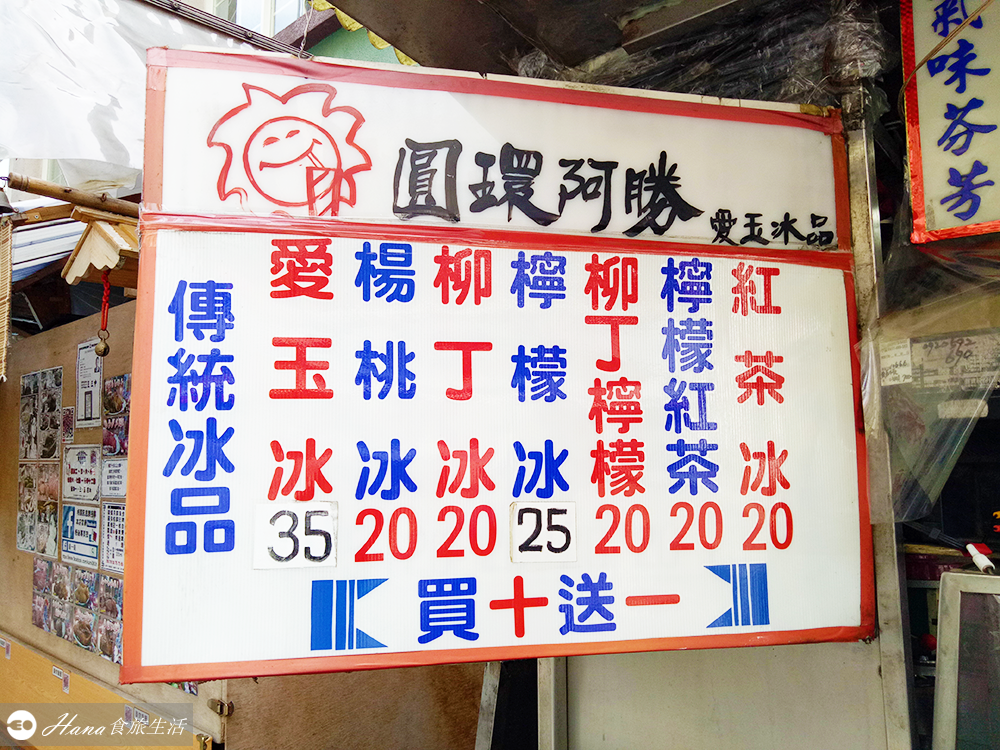 圓環阿勝 愛玉冰品
傳統冰品
愛玉冰 35
楊桃冰 20
柳丁冰 20
檸檬冰 25
柳丁檸檬 20
檸檬紅茶 20
紅茶冰 20
買十送一
氣味芬芳
Hana 食旅生活